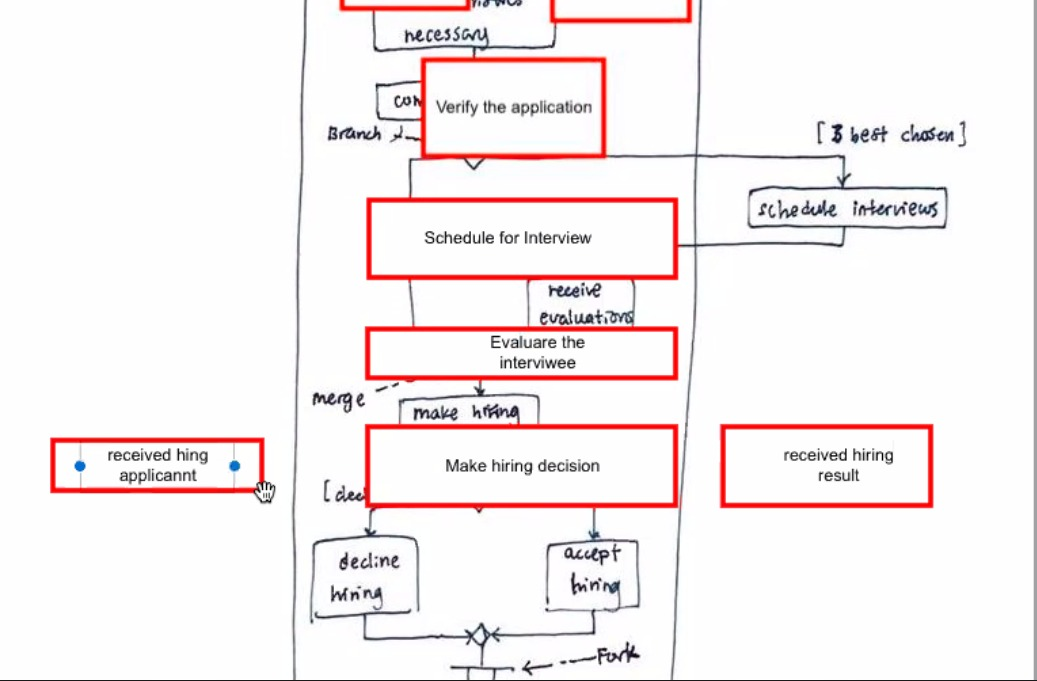 necessary
Verify the application
Branch
[3 best chosen]
schedule interviews
Schedule for Interview
receive
evaluations
Evaluare the
interviwee
merge
make hiring
received hing
applicannt
Make hiring decision
received hiring
result
decline
hiring
accept
hiring
Fork